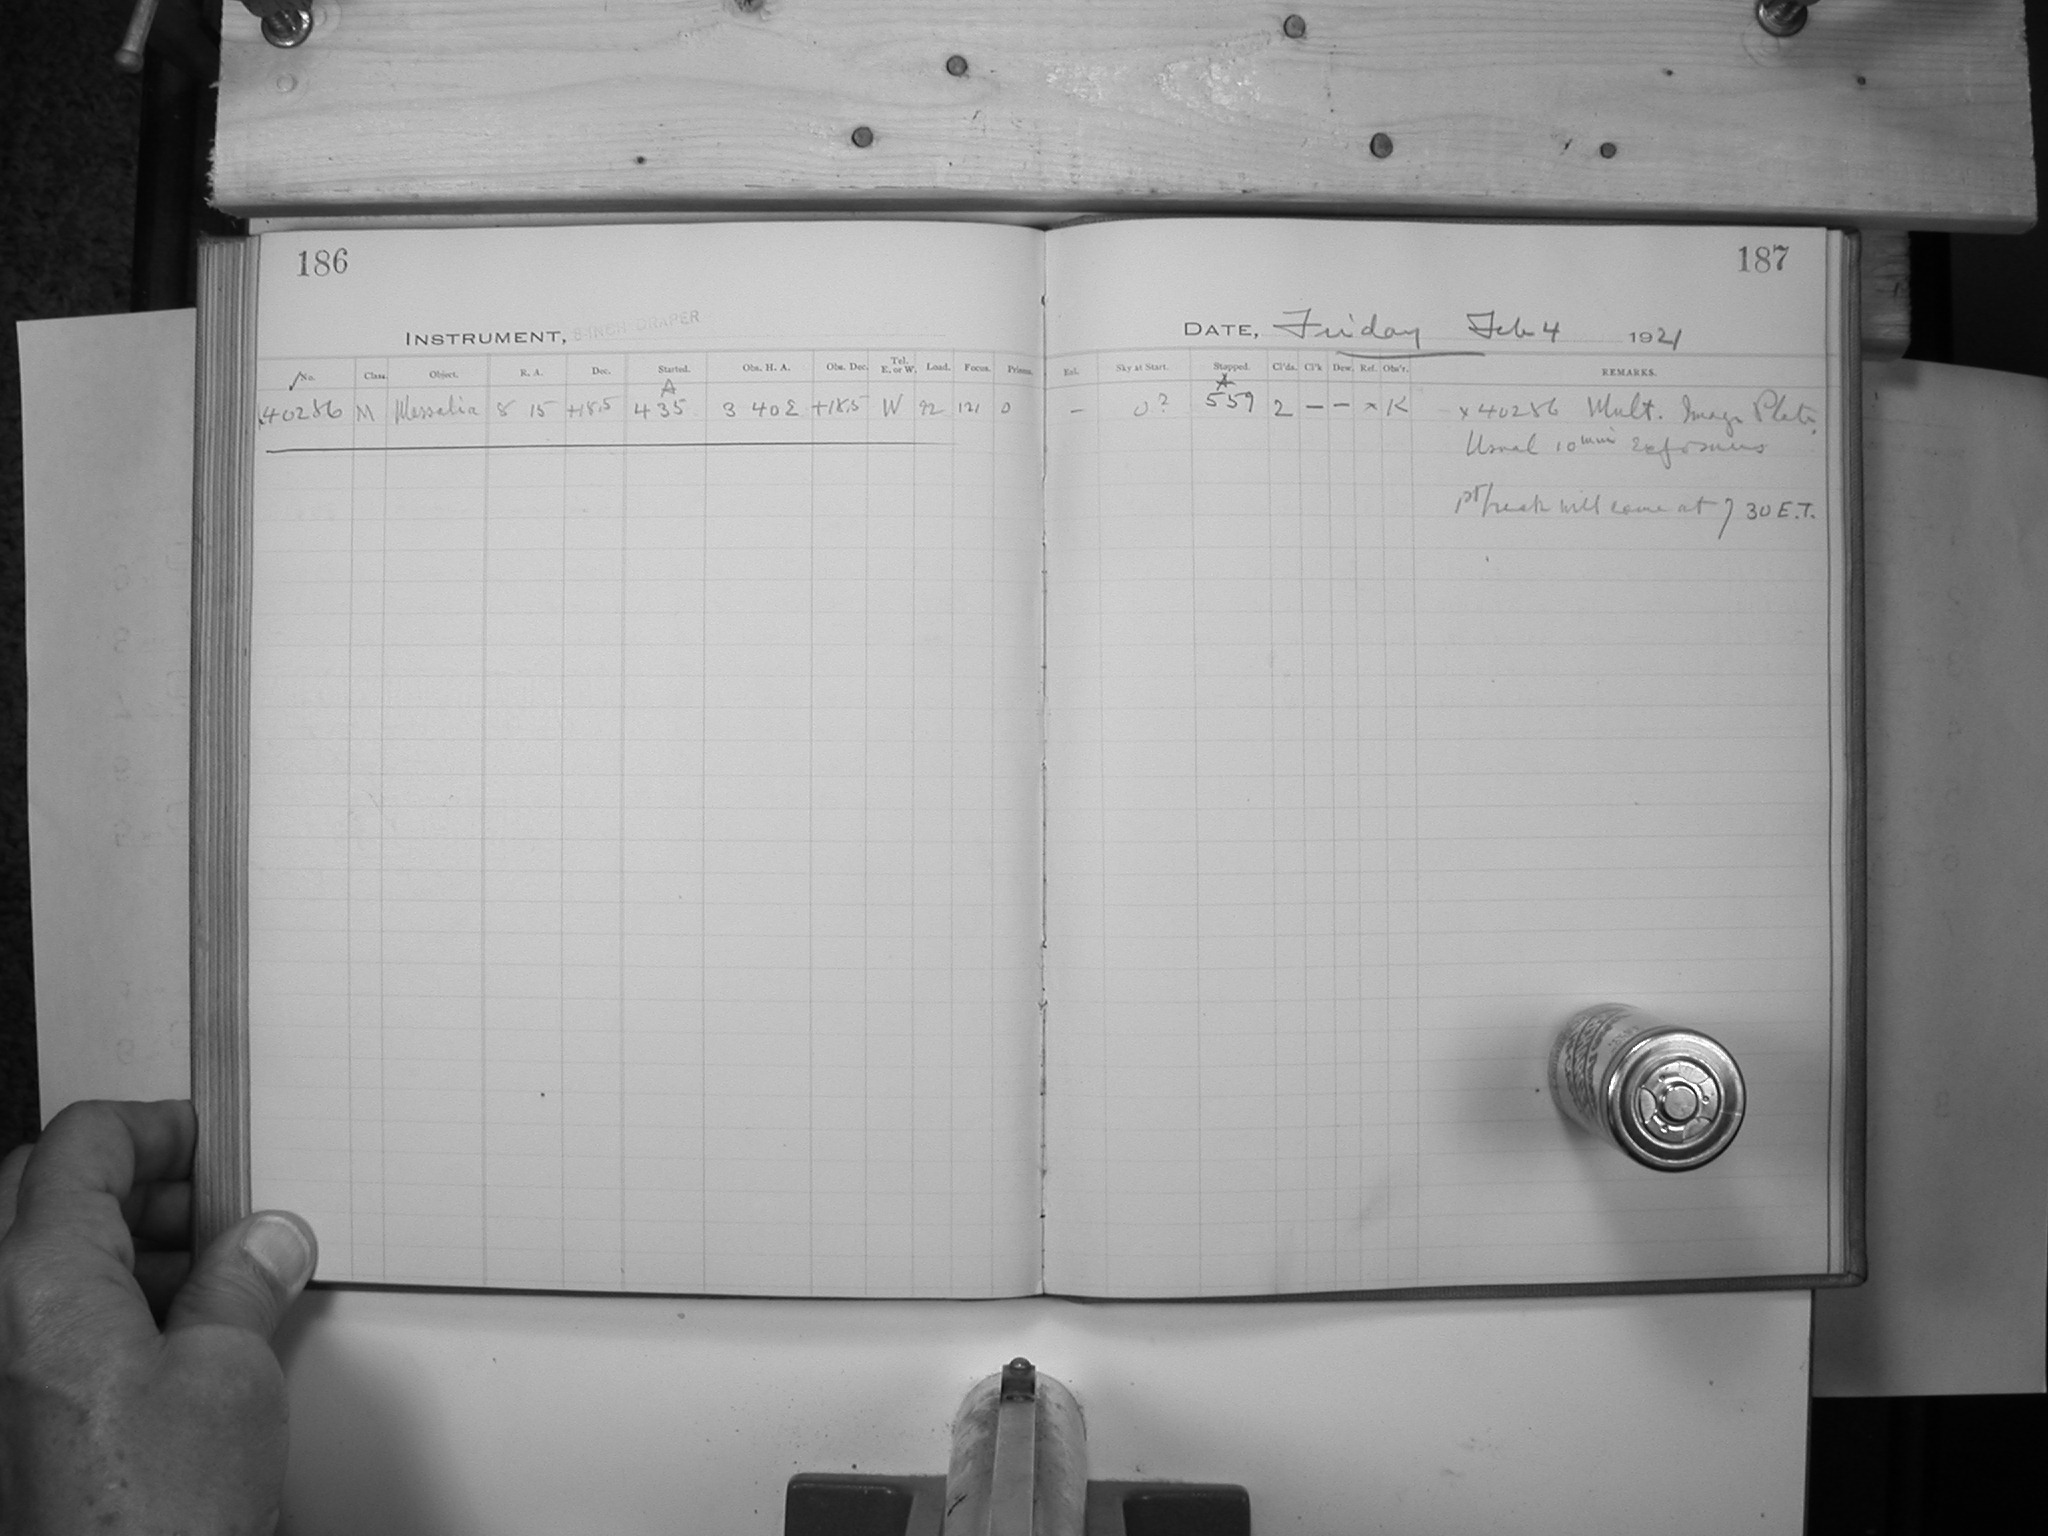 186
187
INSTRUMENT, 8-INCH DRAPER
DATE, Friday Feb 4 1921
No. Class. Object. R. A. Dec. Started. Obs. H. A. Obs. Dec. Tel. E. or W. Load. Focus. Prisms. Exl. Sky at Start. Stopped. Cl'ds. Cl'k Dew. Ref. Obs'r. REMARKS.
A
40286 M Massalia 8 15 +18.5 4 35 3 40 E +18.5 W 92 121 0 — 0? 5 59 2 — — x K x 40286 Mult. Image Plate.
Usual 10 min exposures
break will come at 7 30 E.T.